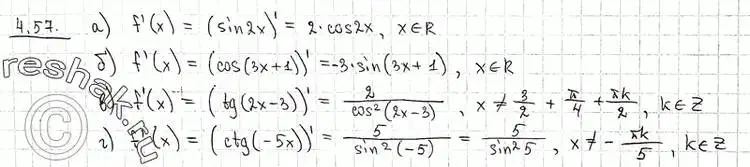 4.57. а) f'(x) = (sin2x)' = 2·cos2x, x∈R
б) f'(x) = (cos(3x+1))' = -3·sin(3x+1), x∈R
в) f'(x) = (tg(2x-3))' = 2/cos²(2x-3), x ≠ 3/2 + π/4 + πk/2, k∈Z
г) f'(x) = (ctg(-5x))' = 5/sin²(-5) = 5/sin²5, x ≠ -πk/5, k∈Z
reshak.ru
©